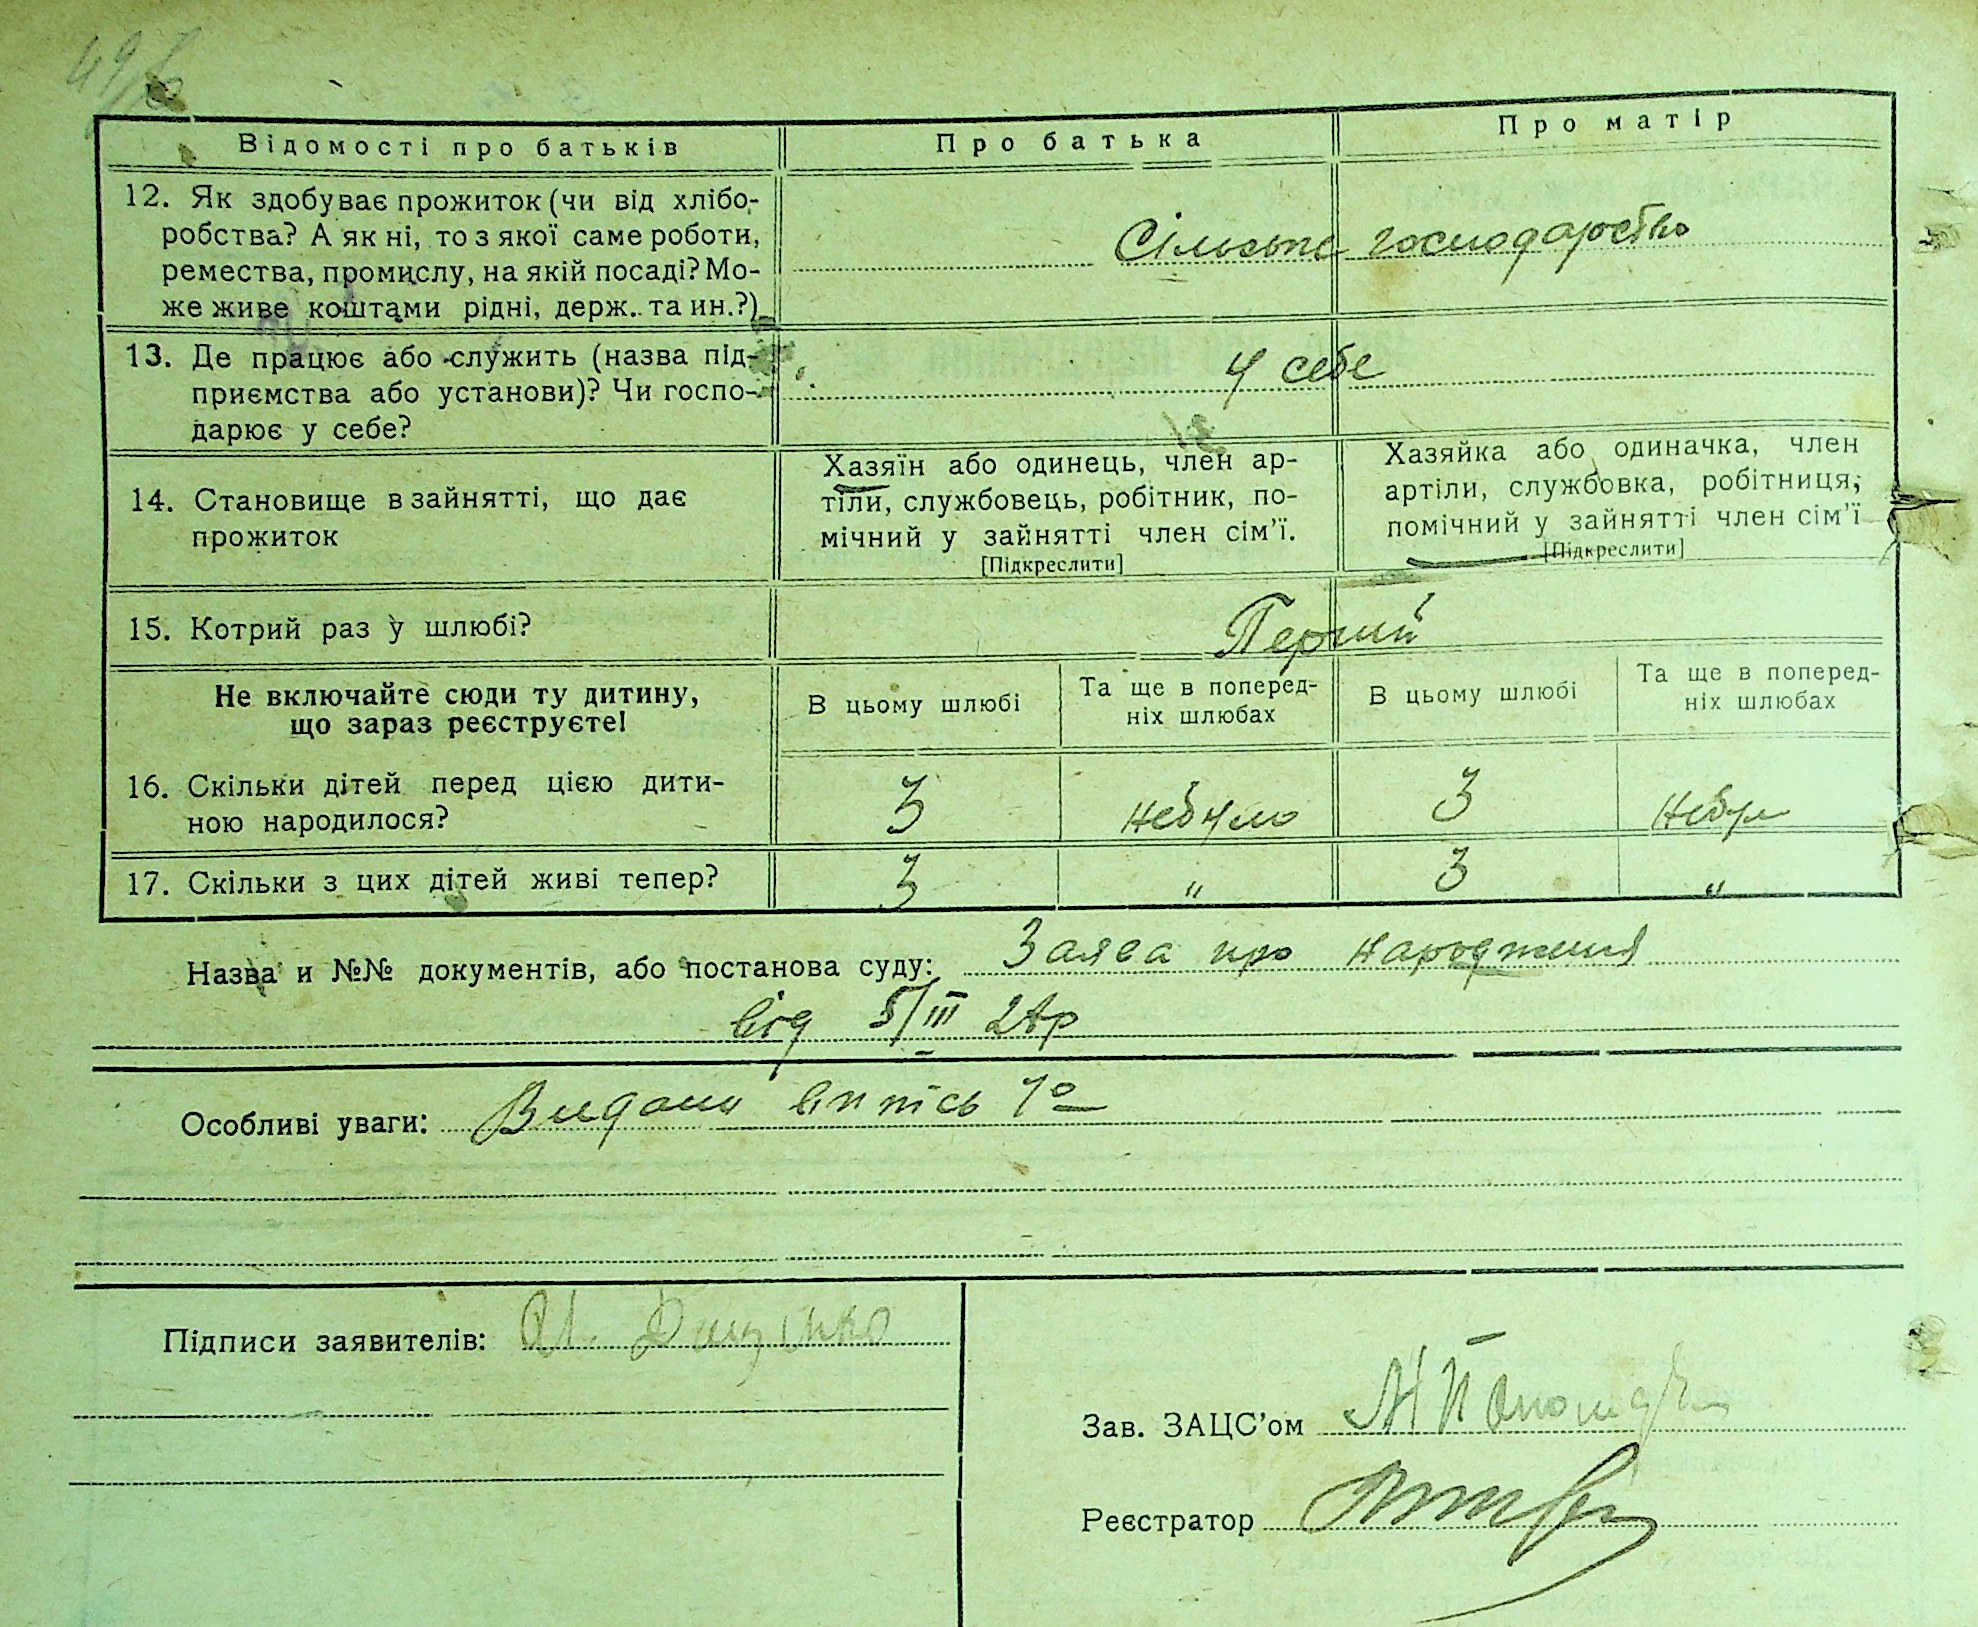 Відомості про батьків Про батька Про матір
12. Як здобуває прожиток (чи від хлібо-
робства? А як ні, то з якої саме роботи,
ремества, промислу, на якій посаді? Мо-
же живе коштами рідні, держ. та ин.?)
Сільське господарство
13. Де працює або служить (назва під-
приємства або установи)? Чи госпо-
дарює у себе?
У себе
14. Становище в зайнятті, що дає
прожиток
Хазяїн або одинець, член ар-
тіли, службовець, робітник, по-
мічний у зайнятті член сім’ї.
[Підкреслити]
Хазяйка або одиначка, член
артіли, службовка, робітниця,
помічний у зайнятті член сім’ї
[Підкреслити]
15. Котрий раз у шлюбі? Перший
Не включайте сюди ту дитину,
що зараз реєструєте!
В цьому шлюбі
Та ще в поперед-
ніх шлюбах
В цьому шлюбі
Та ще в поперед-
ніх шлюбах
16. Скільки дітей перед цією дити-
ною народилося?
3 небуло 3 небул
17. Скільки з цих дітей живі тепер? 3 " 3 "
Назва и №№ документів, або постанова суду: Заява про народження
від 5/III
Особливі уваги: Видани
Підписи заявителів:
Зав. ЗАЦС’ом
Реєстратор